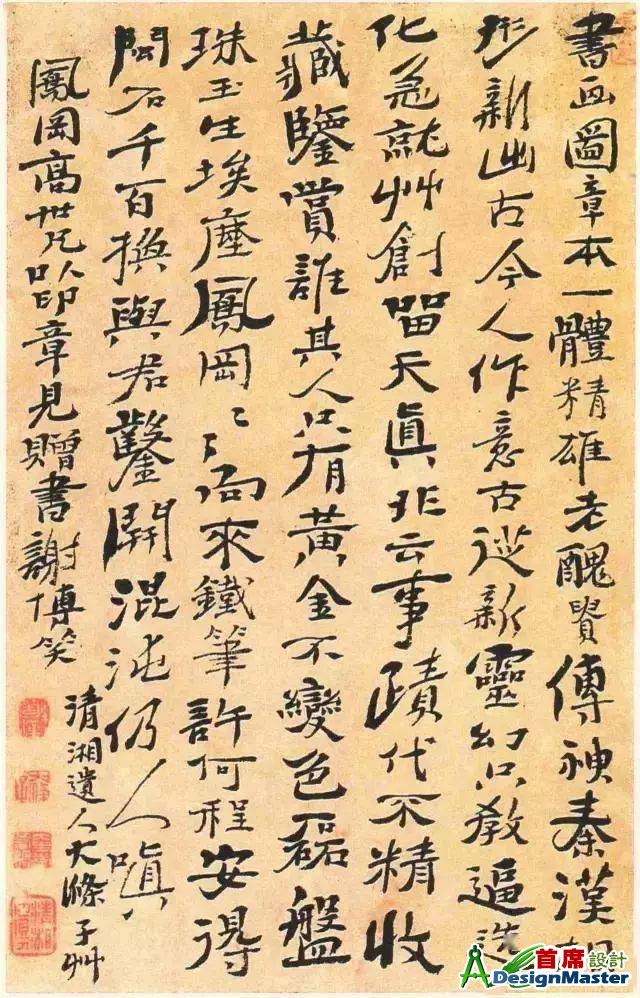 書画圖章本一體精雄老醜貴傳神秦漢相
形新出古今人作意古從新靈幻只教逼造
化急就艸創留天真非云事蹟代不精收
藏鑒賞誰其人只有黃金不變色磊盤
珠玉生埃塵鳳岡〻〻向來鐵筆許何程安得
石千百換與君鑿開混沌仍人嗔
鳳岡高世兄以印章見贈書謝博笑
清湘遺人大滌子艸
首席設計
ADesignMaster